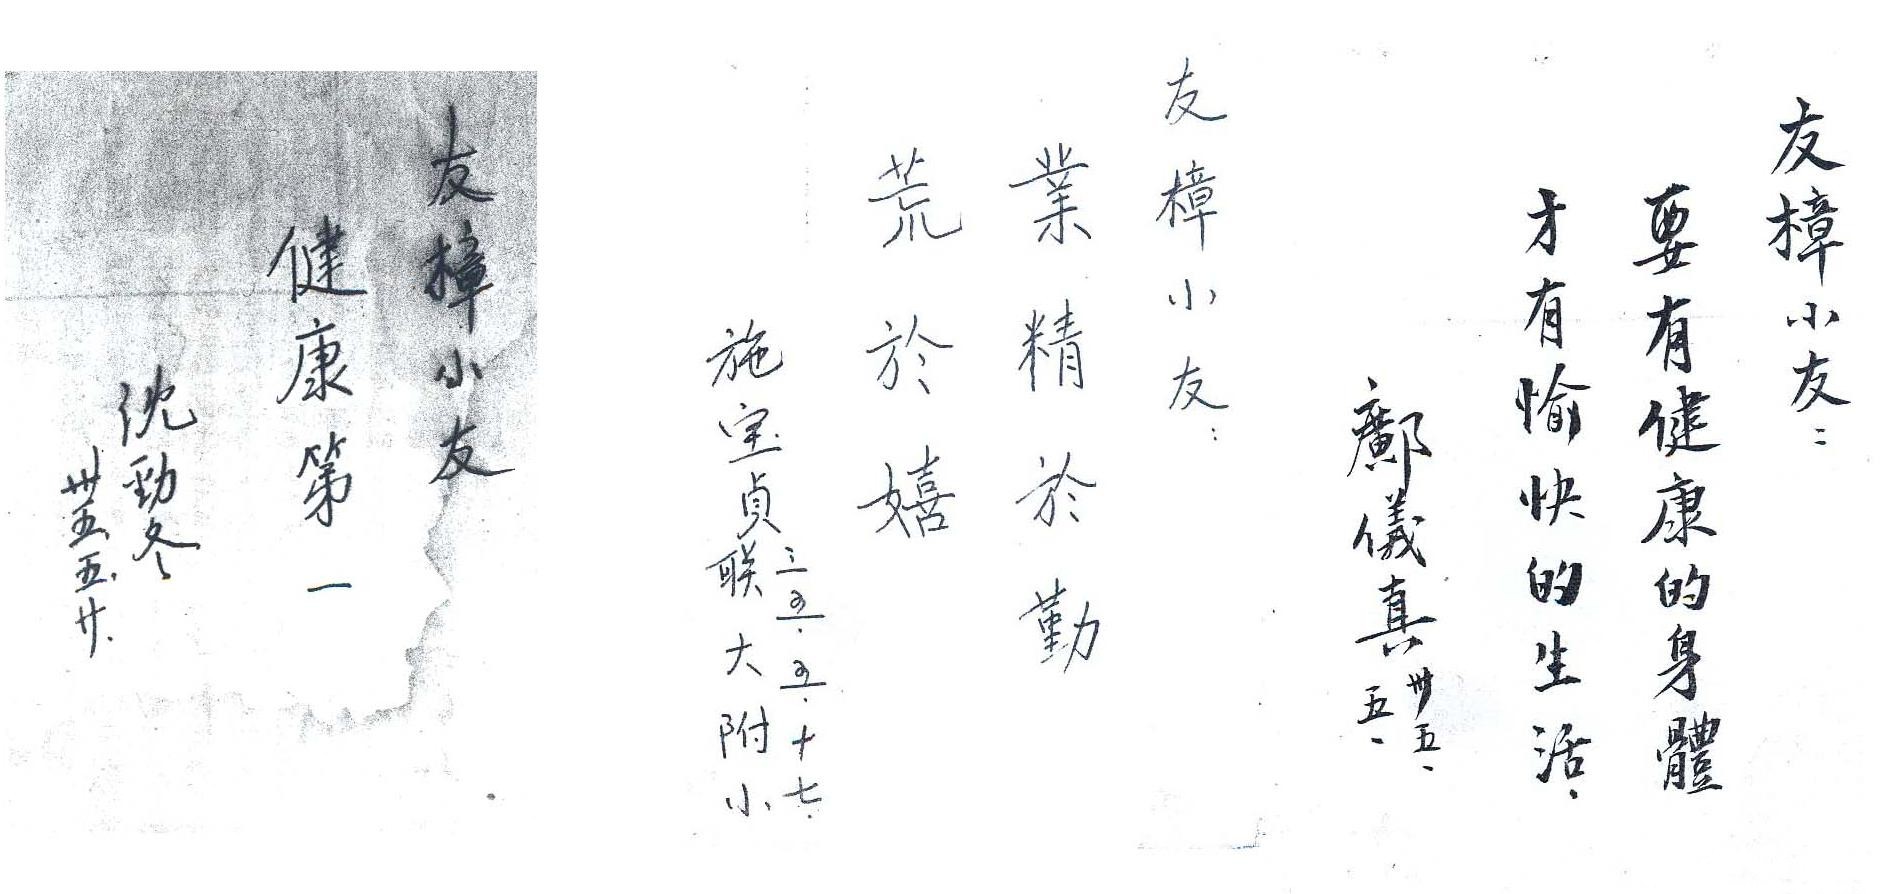 友樟小友：
要有健康的身體
才有愉快的生活、
鄺儀真
卅五、
五、
友樟小友：
業精於勤
荒於嬉
三五.五.十七.
施宝貞 联大附小
友樟小友
健康第一
沈勁冬
卅五、五、廿、